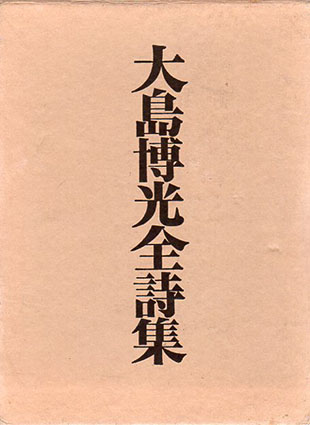 大島博光全詩集